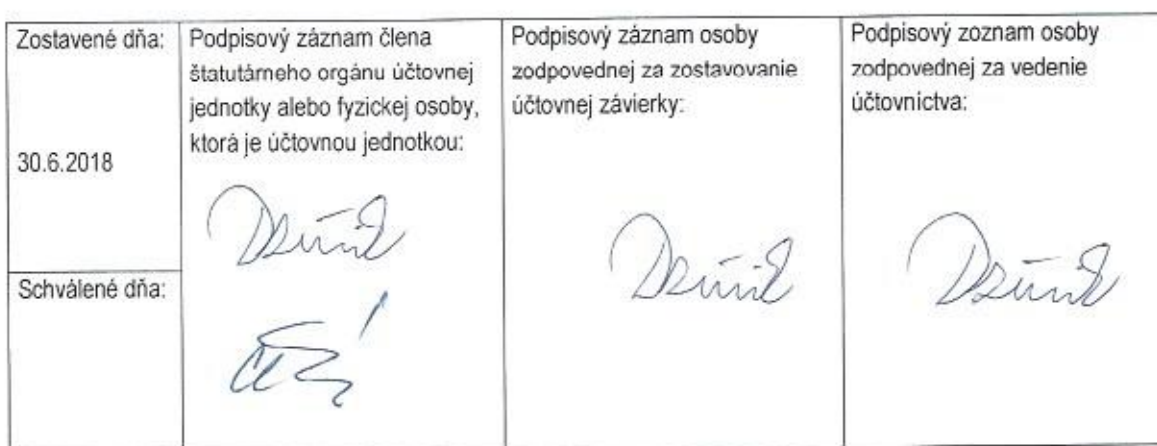 Zostavené dňa:
30.6.2018
Schválené dňa:
Podpisový záznam člena
štatutárneho orgánu účtovnej
jednotky alebo fyzickej osoby,
ktorá je účtovnou jednotkou:
Podpisový záznam osoby
zodpovednej za zostavovanie
účtovnej závierky:
Podpisový zoznam osoby
zodpovednej za vedenie
účtovníctva: